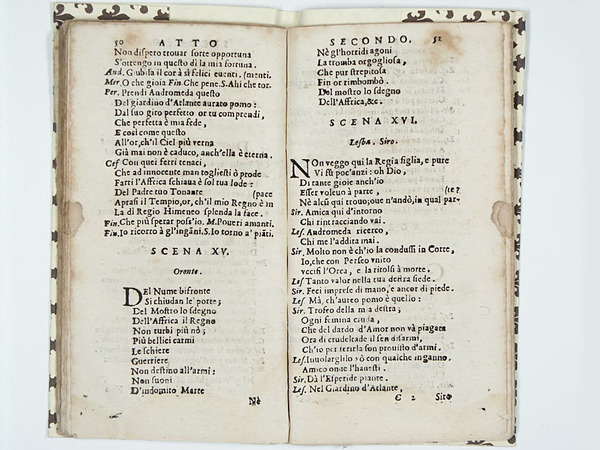 50 ATTO
Non dispero trouar sorte opportuna
S'ottengo in questo dì la mia fortuna.
And. Giubila il cor à sì felici euenti. (menti.
Mer. O che gioia Fin. Che pene. S. Ahi che tor-
Per. Prendi Andromeda questo
Del giardino d'Atlante aurato pomo:
Dal suo giro perfetto or tu comprendi,
Che perfetta è mia fede,
E così come questo
All'or, ch'il Ciel più verna
Già mai non è caduco, anch'ella è eterna.
Cef Con quei ferri tenaci,
Che ad innocente man togliesti ò prode
Farti l'Affrica schiaua è sol tua lode:
Del Padre tuo Tonante (pace
Aprasi il Tempio, or, ch'il mio Regno è in
La di Regio Himeneo splenda la face.
Fin. Che più sperar poss'io. M. Poueri amanti.
Fin. Io ricorro à gl'ingãni. S. Io torno a' piãti.
SCENA XV.
Oronte.
DEl Nume bifronte
Si chiudan le porte;
Del Mostro lo sdegno
Dell'Affrica il Regno
Non turbi più nò;
Più bellici carmi
Le schiere
Guerriere
Non destino all'armi:
Non suoni
D'indomito Marte
Nè
SECONDO. 51
Nè gl'horridi agoni
La tromba orgogliosa,
Che pur strepitosa
Fin or rimbombò.
Del mostro lo sdegno
Dell'Affrica, &c.
SCENA XVI.
Lesba. Siro.
NOn veggo quì la Regia figlia, e pure
Vi fù poc'anzi: oh Dio,
Di tante gioie anch'io
Esser voleua à parte, (te?
Nè alcũ qui trouo; oue n'andò, in qual par-
Sir. Amica qui d'intorno
Chi rintracciando vai.
Les. Andromeda ricerco,
Chi me l'addita mai.
Sir. Molto non è ch'io la condussi in Corte,
Io, che con Perseo vnito
vccisi l'Orca, e la ritolsi à morte.
Les Tanto valor nella tua destra siede.
Sir. Feci imprese di mano, e ancor di piede.
Les Mà, ch'aureo pomo è quello:
Sir. Trofeo della mia destra;
Ogni femina cruda,
Che del dardo d'Amor non và piagata
Ora di crudeltade il sen disarmi,
Ch'io per ferirla son prouisto d'armi.
Les. Inuolargliło vò con qualche inganno.
Amico onde l'hauesti.
Sir. Dà l'Esperide piante.
Les. Nel Giardino d'Atlante,
C 2 Siro